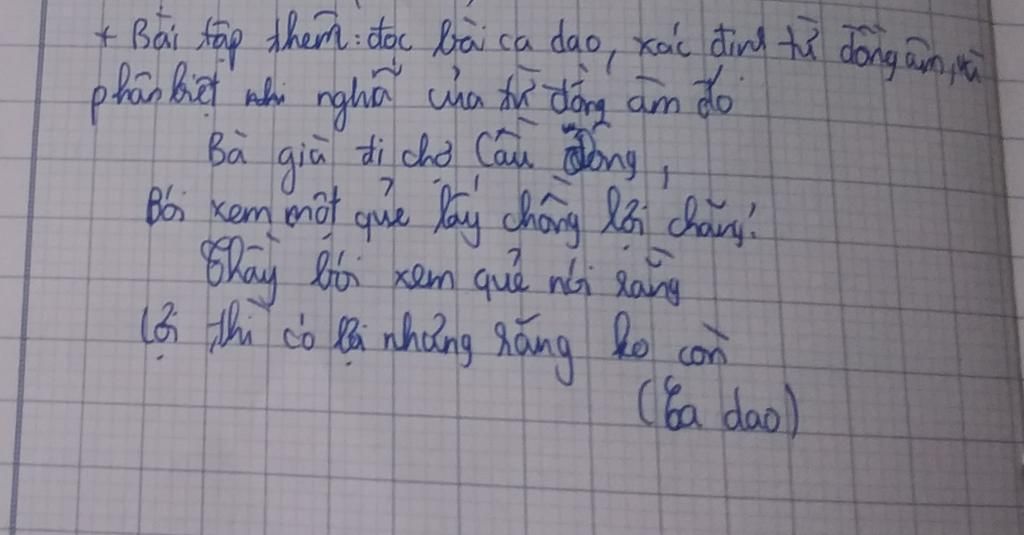 + Bài tập thêm: đọc bài ca dao, xác định từ đồng âm, và
phân biệt nghĩa của từ đồng âm đó
Bà già đi chợ Cầu Đông,
Bói xem một quẻ lấy chồng lợi chăng?
Thầy bói xem quẻ nói rằng
Lợi thì có lợi nhưng răng ko còn
(Ca dao)